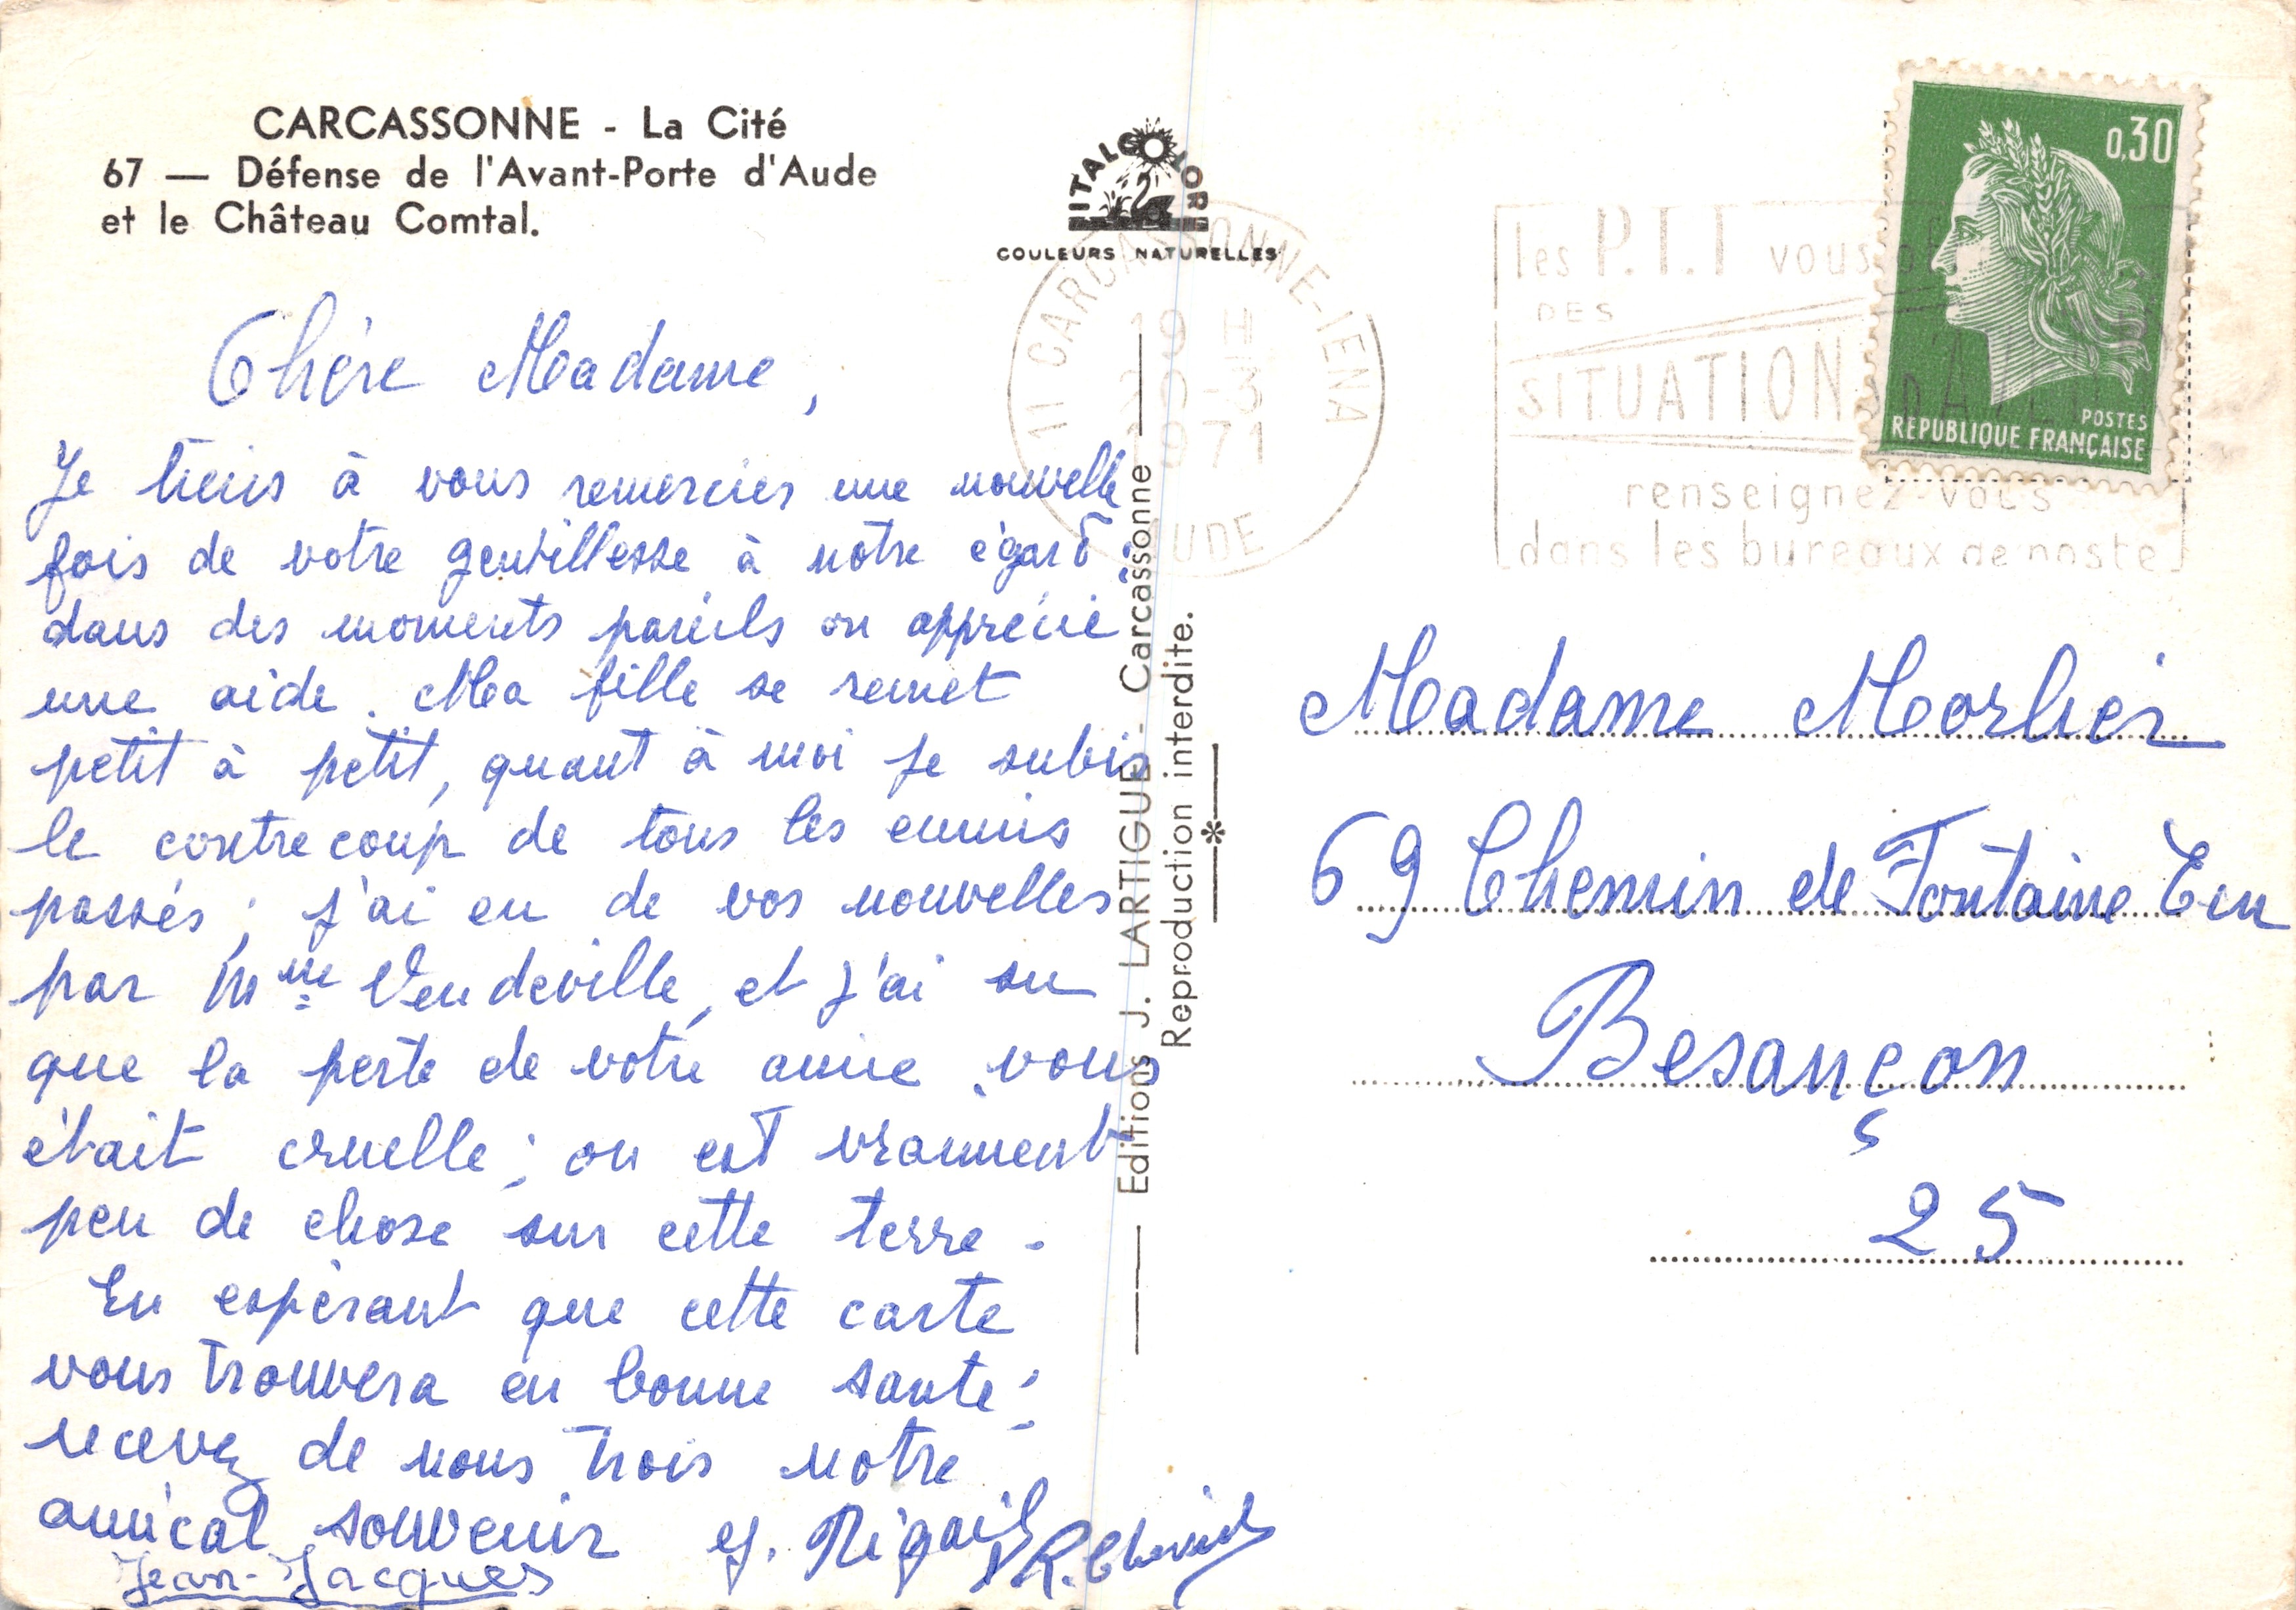 CARCASSONNE - La Cité
67 — Défense de l'Avant-Porte d'Aude
et le Château Comtal.
ITALCOLOR
COULEURS NATURELLES
Chère Madame,
Je tiens à vous remercier une nouvelle
fois de votre gentillesse à notre égard ;
dans des moments pareils on apprécie
une aide. Ma fille se remet
petit à petit, quant à moi je subis
le contrecoup de tous les ennuis
passés ; j'ai eu de vos nouvelles
par Mme Vendeville, et j'ai su
que la perte de votre amie vous
était cruelle ; on est vraiment
peu de chose sur cette terre -
En espérant que cette carte
vous trouvera en bonne santé ;
recevez de nous trois notre
amical souvenir
Jean-Jacques
Editions J. LARTIGUE - Carcassonne
Reproduction interdite.
11 CARCASSONNE-IENA
19 H
20-3
1971
AUDE
les P.T.T vous
DES
SITUATIONS
renseignez-vous
dans les bureaux de poste
0,30
POSTES
REPUBLIQUE FRANÇAISE
Madame Morlier
69 Chemin de Fontaine Eu
Besançon
25